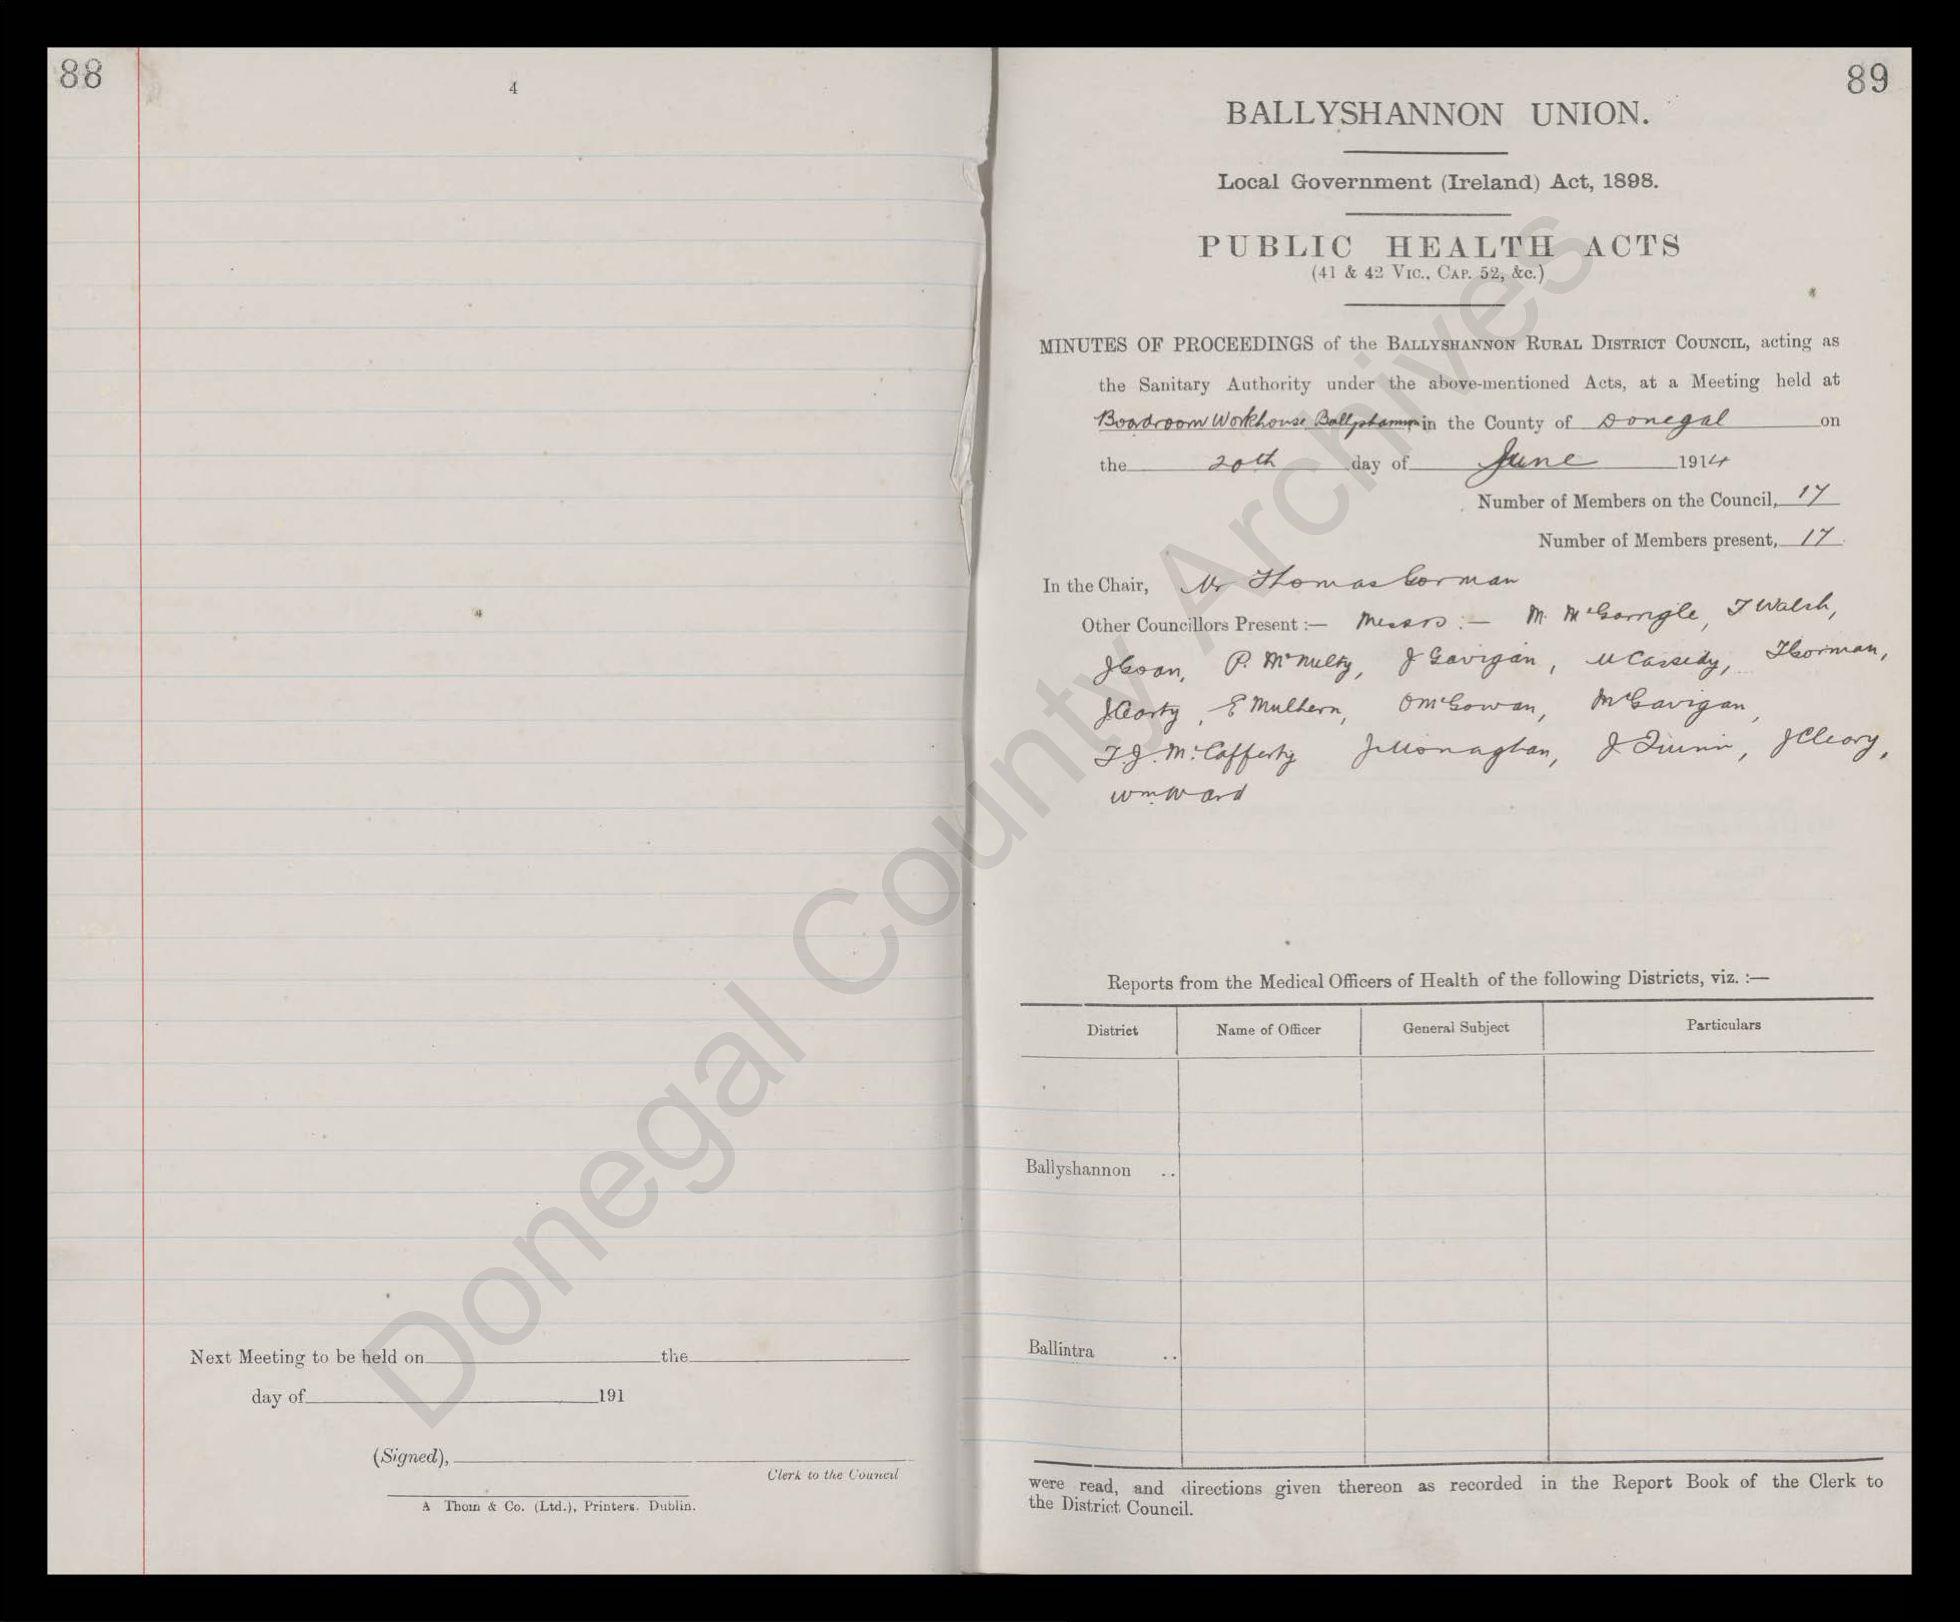 88
4
Next Meeting to be held on the
day of 191
(Signed),
Clerk to the Council
A Thom & Co. (Ltd.), Printers. Dublin.
89
BALLYSHANNON UNION.
Local Government (Ireland) Act, 1898.
PUBLIC HEALTH ACTS
(41 & 42 VIC., CAP. 52, &c.)
MINUTES OF PROCEEDINGS of the BALLYSHANNON RURAL DISTRICT COUNCIL, acting as
the Sanitary Authority under the above-mentioned Acts, at a Meeting held at
Boardroom Workhouse Ballyshannon in the County of Donegal on
the 20th day of June 1914
Number of Members on the Council, 17
Number of Members present, 17
In the Chair, Mr Thomas Gorman
Other Councillors Present :— Messrs :— M. McGarrigle, T Walsh,
J Goan, P. McNulty, J Gavigan, M Cassidy, T Gorman,
J Carty, E Mulhern, O McGowan, M Gavigan,
T. J. McCafferty J Monaghan, J. Quinn, J Cleary,
Wm Ward
Reports from the Medical Officers of Health of the following Districts, viz. :—
District Name of Officer General Subject Particulars
Ballyshannon ..
Ballintra ..
were read, and directions given thereon as recorded in the Report Book of the Clerk to
the District Council.
Donegal County Archives